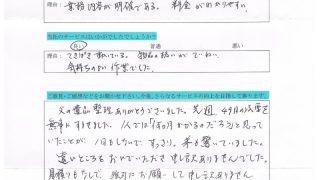 理由: 業務内容が明確である。料金がわかりやすい。
当社のサービスはいかがでしたでしょうか?
良い 普通 悪い
理由: てきぱき動いている。物品の扱いがていねい。
気持ちのよい作業でした。
ご意見・ご感想などをお聞かせ下さい。今後、さらなるサービスの向上を目指して参ります。
父の遺品整理ありがとうございました。先週、49日の法要を
無事にすませました。1人では「何ヶ月かかるのだろう」と思って
いたことが、1日もしないで、すっきり。弟も驚いていました。
遠いところをおいでいただき申し訳ありませんでした。
見積りもなしで、強引にお願いして申し訳ありません